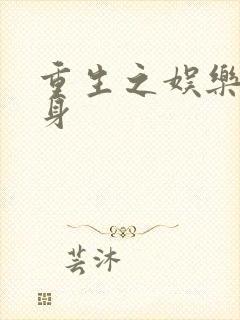 重生之娱樂
身
芸沐